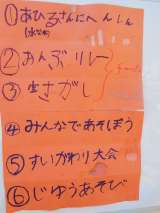 ①あひるさんにへんしん
(水なめ)
②おんぶリレー
③宝さがし
④みんなであそぼう
⑤すいかわり大会
⑥じゆうあそび